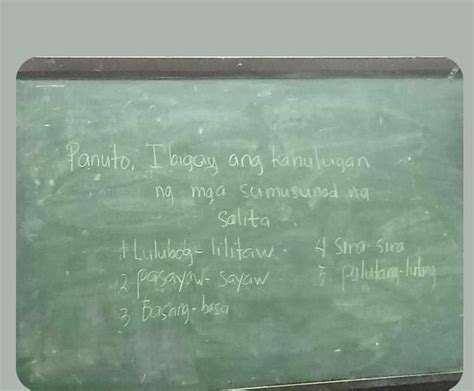 Panuto. Ibigay ang kahulugan
ng mga sumusunod na
salita
1 Lulubog - lilitaw
2. pasayaw - sayaw
3 Basang - basa
4 sira - sira
5. palutang - lutang